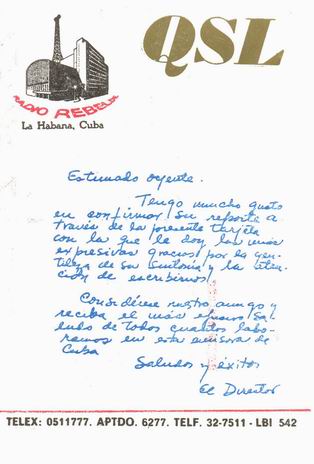 QSL
RADIO REBELDE
La Habana, Cuba
Estimado oyente.
Tengo mucho gusto
en confirmar su reporte a
través de la presente tarjeta
con la que le doy las más
expresivas gracias por la gen-
tileza de su sintonía y la aten-
ción de escribirnos.
Considérese nuestro amigo y
reciba el más efusivo sa-
ludo de todos cuantos labo-
ramos en esta emisora de
Cuba
Saludos y éxitos
El Director
TELEX: 0511777. APTDO. 6277. TELF. 32-7511 - LBI 542